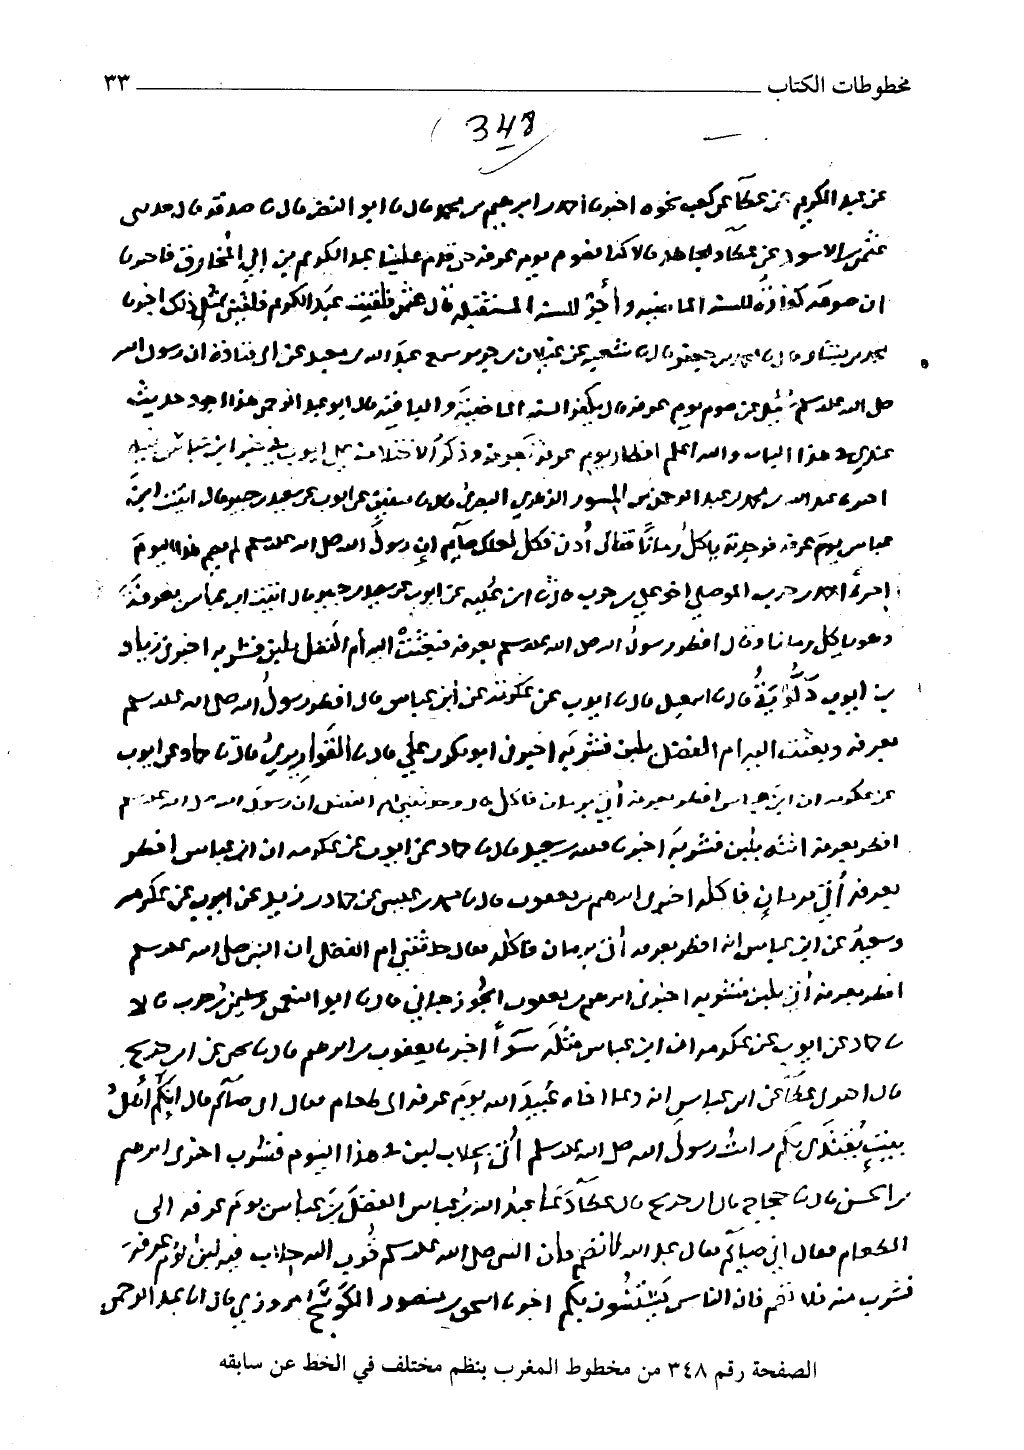 مخطوطات الكتاب ٣٣
348
عن عبد الكريم عن عطا عن كعب نحوه اخبرنا احمد بن ابرهيم بن محمد قال نا ابو النضر قال نا صدقه قال حدثنى
عثمن بن الاسود عن عطا ومجاهد قالا كنا نصوم يوم عرفه حتى قدم علينا عبد الكريم بن ابي المخارق فاخبرنا
ان صومه كفارة للسنه الماضيه وأجر للسنه المستقبله قال عثمن فلقيت عبد الكريم فلقيني بمثل ذلك اخبرنا
محمد بن بشار قال نا محمد بن جعفر قال نا شعبه عن غيلان بن جرير سمع عبد الله بن معبد عن ابى قتادة ان رسول الله
صلى الله عليه وسلم سُئل عن صوم يوم عرفه قال يكفر السنه الماضية والباقيه قال ابو عبد الرحمن هذا اجود حديث
عندي في هذا الباب والله اعلم افطار يوم عرفة بعرفة وذكر الاختلاف على ايوب في خبر ابن عباس فيه
اخبرنا عبد الله بن محمد بن عبد الرحمن بن المسور الزهري البصرى قال نا سفين عن ايوب عن سعيد بن جبير قال اتيت ابن
عباس يوم عرفه فوجدته ياكل رمانا فقال أدن فكل لعلك صايم إن رسول الله صلى الله عليه وسلم لم يصم هذا اليوم
اخبرنا احمد بن حرب الموصلي اخو علي بن حرب قال نا ابن عُليه عن ايوب عن سعيد بن جبير قال اتيت ابن عباس بعرفة
وهو ياكل رمانا وقال افطر رسول الله صلى الله عليه وسلم بعرفه فبعثت اليه أم الفضل بلبن فشربه اخبرنى زياد
بن ايوب دَلُّويَةُ قال نا اسمعيل قال نا ايوب عن عكرمة عن ابن عباس قال افطر رسول الله صلى الله عليه وسلم
بعرفه وبعثت اليه ام الفضل بلبن فشربه اخبرنى ابو بكر بن علي قال نا القواريريُّ قال نا حماد عن ايوب
عن عكرمه ان ابن عباس افطر بعرفه أُتي برمان فاكل قال وحدثتنى ام الفضل ان رسول الله صلى الله عليه وسلم
افطر بعرفة اتته بلبن فشربه اخبرنا قتيبه بن سعيد قال نا حماد عن ايوب عن عكرمه ان ابن عباس افطر
بعرفه أُتي برمانٍ فاكله اخبرنى ابرهيم بن يعقوب قال نا محمد بن عيسى عن حماد بن زيد عن ايوب عن عكرمه
وسعيد عن ابن عباس انه افطر بعرفه أُتى برمان فاكله وقال حدثتني ام الفضل ان النبى صلى الله عليه وسلم
افطر بعرفه أُتي بلبن فشربه اخبرنى ابرهيم بن يعقوب الجُوزجاني قال نا ابو النعمن وسليمن بن حرب قالا
نا حماد عن ايوب عن عكرمه ان ابن عباس مثله سوآً اخبرنا يعقوب بن ابرهيم قال نا يحيى عن ابن جريج
قال اخبرنى عطا عن ابن عباس انه دعا اخاه عُبيد الله يوم عرفه الى طعام فقال انى صآئم قال إنكم أهلُ
بيتٍ يُقتدى بكم رايتُ رسول الله صلى الله عليه وسلم أُتى بحلاب لبن في هذا اليوم فشرب اخبرنى ابرهيم
بن الحسن قال نا حجاج قال ابن جريج قال عطآ دعا عبد الله بن عباس الفضل بن عباس يوم عرفه الى
الطعام فقال إني صايم فقال عبد الله لا تصم فان النبى صلى الله عليه وسلم قُرب اليه حلاب فيه لبن يوم عرفه
فشرب منه فلا تصم فان الناس يَسْتَنُّون بكم اخبرنا اسحق بن منصور الكَوْسَج المروزي قال انا عبد الرحمن
الصفحة رقم ٣٤٨ من مخطوط المغرب بنظم مختلف في الخط عن سابقه